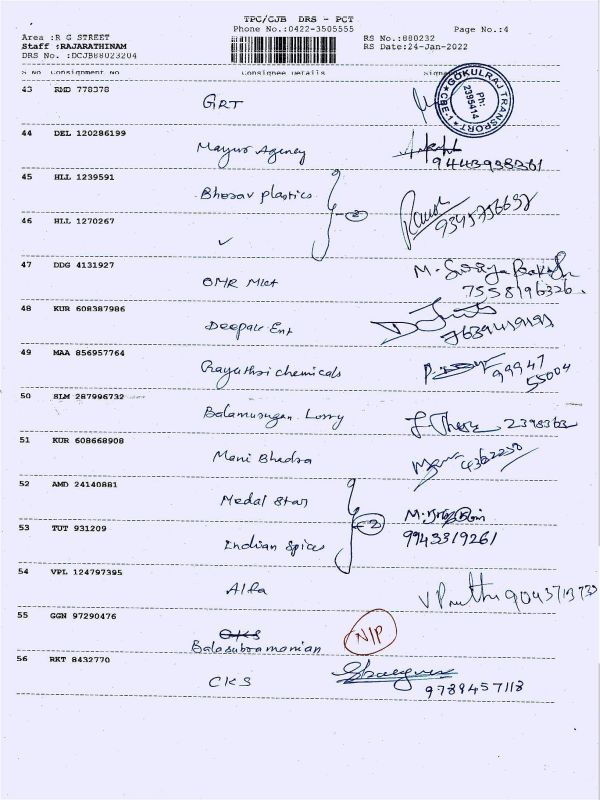 TPC/CJB DRS - PCT
Phone No.:0422-3505555 Page No.:4
Area :R G STREET RS No.:880232
Staff :RAJARATHINAM RS Date:24-Jan-2022
DRS No. :DCJB88023204
S No Consignment No Consignee Details
43 RMD 778378 GRT
GOKULRAJ TRANSPORT
Ph: 2395414
CBE-1
44 DEL 120286199 Mayur Agency
9443938361
45 HLL 1239591 Bherav plastics
46 HLL 1270267 ✓
47 DDG 4131927 OMR Mkt
7558196326.
48 KUR 608387986 Deepak Ent
49 MAA 856957764 Gayathri chemicals 99947
55004
50 SLM 287996732 Balamurugan Lorry
51 KUR 608668908 Mani Bhadra
52 AMD 24140881 Medal Star
53 TUT 931209 Indian Spices 9943319261
54 VPL 124797395 Alfa
55 GGN 97290476 Balasubramanian N/P
56 RKT 8432770 CKS
9789457118